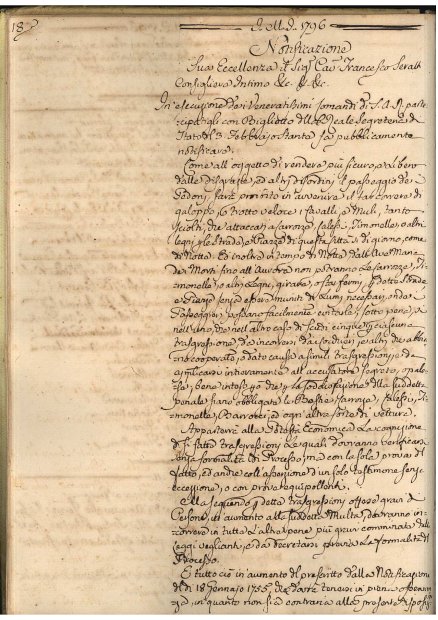 18
A. M. D. 1796
Notificazione
Sua Eccellenza il Sig. Cav. Francesco Seratti
Consigliere Intimo &c. &c. &c.
In esecuzione dei Veneratissimi comandi di S. A. R. parte-
cipatigli con Biglietto dell R. Segreteria di
Stato del 3. Febbrajo Stante fa pubblicamente
notificare.
Come all'oggetto di rendere più sicuro, e libero
dalle disgrazie, ed altri disordini il passeggio de'
Pedoni sarà proibito in avvenire il far correre di
galoppo, o trotto veloce i Cavalli, e Muli, tanto
sciolti, che attaccati a Carrozze, Calessi, Timonelle, o altri
legni per le strade, e Piazze di questa Città sì di giorno, come
di Notte. Ed inoltre in tempo di Notte dall'Ave Maria
de' Morti fino all'Aurora non potranno le Carrozze, Ti-
monelle, o altri Legni, girare, o star fermi per dette Strade
e Piazze senza essere muniti di Lumi necessari, onde i
Passeggieri possano facilmente evitarle, sotto pena, e
nell'uno, che nell'altro caso di Scudi cinque per ciascuna
trasgressione da incorrersi dai Conduttori, e altri che abbia-
no cooperato, o dato causa a simili trasgressioni, e da
applicarsi intieramente all'accusatore segreto, o pale-
se, bene inteso che per la soddisfazione della suddetta
penale siano obbligate le Bestie, Carrozze, Calessi, Ti-
monelle, Barrocci, ed ogn'altra sorte di vetture.
Apparterrà alla Potestà Economica la cognizione
di sì fatte trasgressioni le quali dovranno verificarsi
senza formalità di Processo, ma con la sola prova di
fatto, ed anche coll'asserzione d'un solo testimone senza
eccezione, o con prove equipollenti.
E alla seguendo per dette trasgressioni offese gravi a
Persone, in aumento alla suddetta Multa, dovranno in-
correre in tutte l'altre pene più gravi comminate dalle
Leggi veglianti, e da decretarsi previa la formalità del
Processo.
E tutto ciò in aumento del prescritto dalla Notificazione
del dì 18 Gennajo 1755, che dovrà tenersi in piena osservan-
za, in quanto non sia contraria alla presente disposiz.